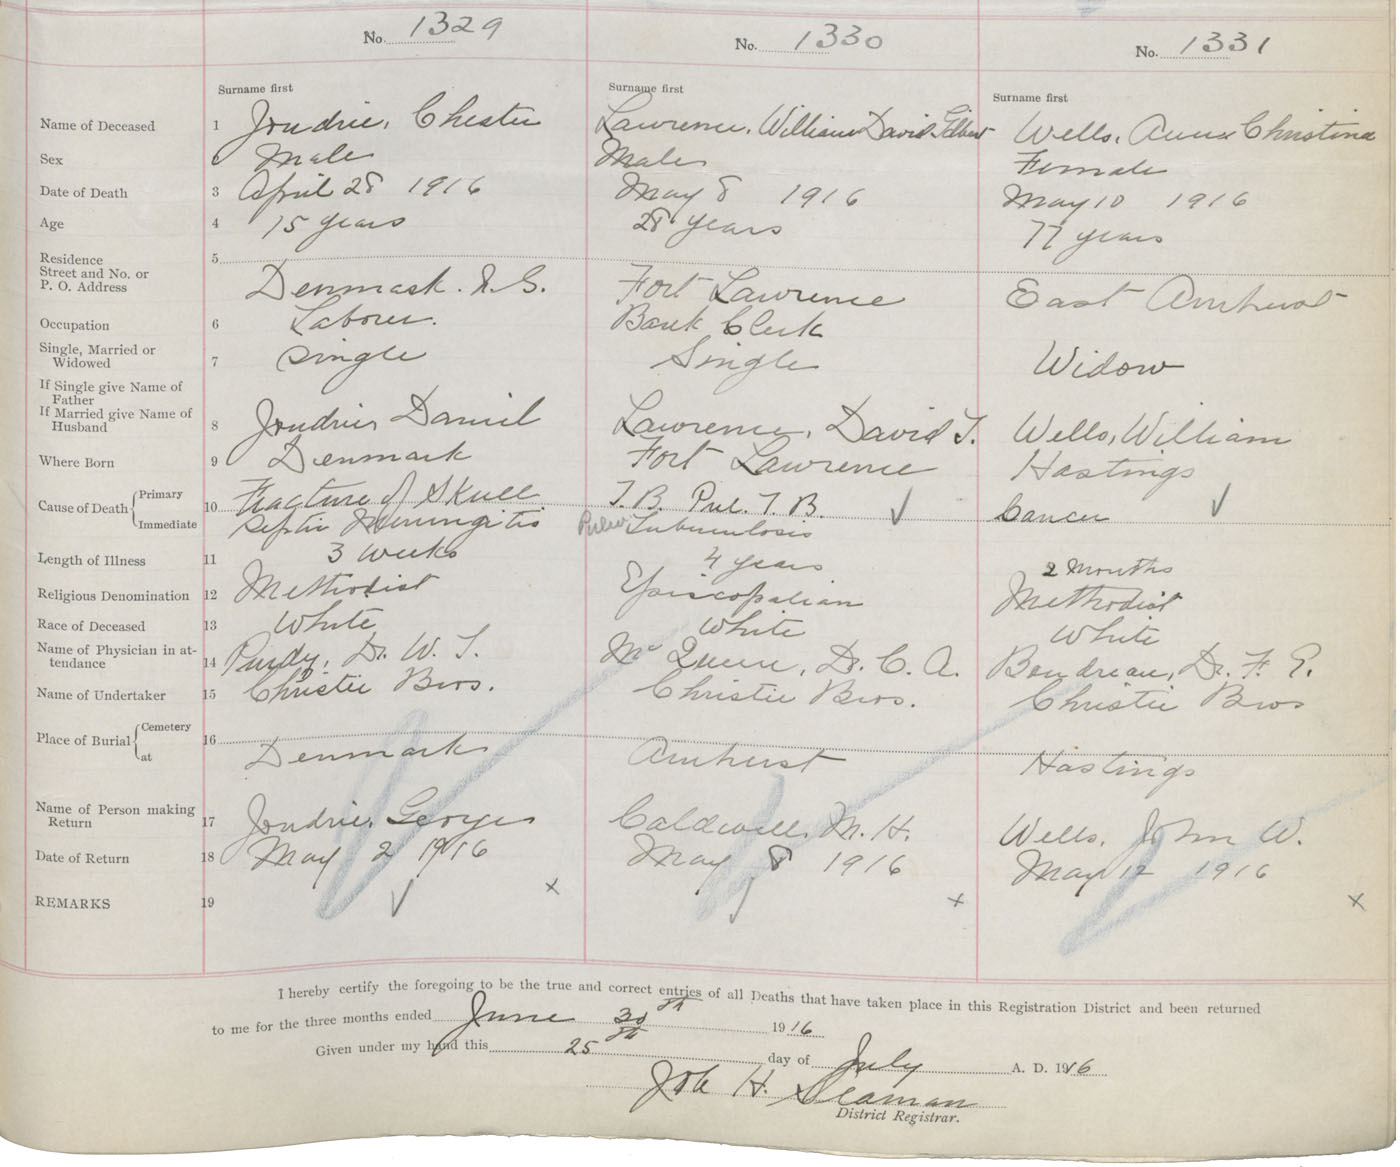 No. 1329
No. 1330
No. 1331
Surname first
Surname first
Surname first
Name of Deceased 1 Joudrie, Chester Lawrence, William David Gilbert Wells, Anna Christina
Sex Male Male Female
Date of Death 3 April 28 1916 May 8 1916 May 10 1916
Age 4 15 years 28 years 77 years
Residence 5
Street and No. or
P. O. Address Denmark. N.S. Fort Lawrence East Amherst
Occupation 6 Laborer. Bank Clerk
Single, Married or
Widowed 7 Single Single Widow
If Single give Name of
Father
If Married give Name of
Husband 8 Joudrie, Daniel Lawrence, David T. Wells, William
Where Born 9 Denmark Fort Lawrence Hastings
Cause of Death Primary 10 Fracture of Skull T.B. Pul. T.B. Cancer
Immediate Septic Meningitis Tuberculosis
Length of Illness 11 3 weeks 4 years 2 Months
Religious Denomination 12 Methodist Episcopalian Methodist
Race of Deceased 13 White White White
Name of Physician in at-
tendance 14 Purdy, Dr. W. T. McQueen, Dr. C. A. Boudreau, Dr. F. E.
Name of Undertaker 15 Christie Bros. Christie Bros. Christie Bros
Place of Burial Cemetery 16
at Denmark Amherst Hastings
Name of Person making
Return 17 Joudrie, George Caldwell, M. H. Wells, John W.
Date of Return 18 May 2 1916 May 8 1916 May 12 1916
REMARKS 19 x x x
I hereby certify the foregoing to be the true and correct entries of all Deaths that have taken place in this Registration District and been returned
to me for the three months ended June 30th 1916
Given under my hand this 25th day of July A. D. 1916
Job H. Seaman
District Registrar.